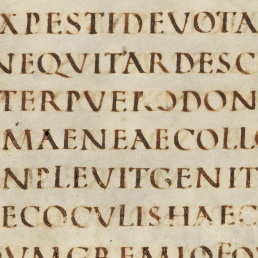 XPESTIDEVOTA
NEQVITARDESC
TERPVERODON
MAENEAECOLLO
NPLEVITGENIT
ECOCVLISHAEC
VMGREMIOFO